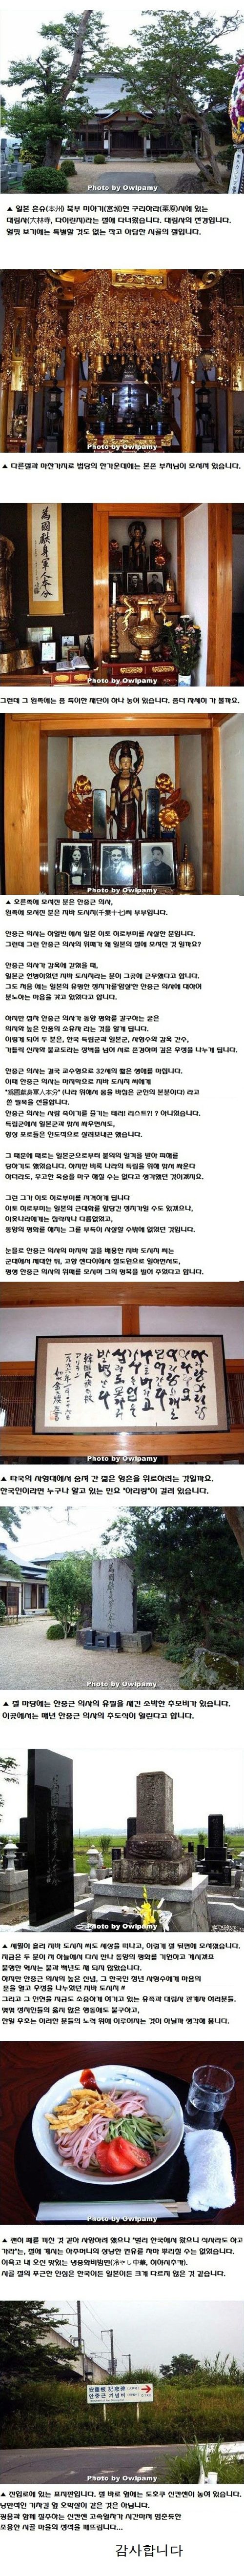 Photo by Owlpamy
▲ 일본 혼슈(本州) 북부 미야기(宮城)현 구리하라(栗原)시에 있는
대림사(大林寺, 다이린지)라는 절에 다녀왔습니다. 대림사의 전경입니다.
얼핏 보기에는 특별할 것도 없는 작고 아담한 시골의 절입니다.
Photo by Owlpamy
▲ 다른절과 마찬가지로 법당의 한가운데에는 본존 부처님이 모셔져 있습니다.
爲國獻身軍人本分
Photo by Owlpamy
그런데 그 왼쪽에는 좀 특이한 재단이 하나 놓여 있습니다. 좀더 자세히 가 볼까요.
Photo by Owlpamy
▲ 오른쪽에 모셔진 분은 안중근 의사,
왼쪽에 모셔진 분은 지바 도시치(千葉十七)씨 부부입니다.
안중근 의사는 하얼빈 에서 일본 이토 히로부미를 사살한 분입니다.
그런데 그런 안중근 의사의 위패가 왜 일본의 절에 모셔진 것 일까요?
안중근 의사가 감옥에 갇혔을 때,
일본군 헌병이었던 지바 도시치라는 분이 그곳에 근무했다고 합니다.
그도 처음 에는 일본의 유명한 정치가를암살한 안중근 의사에 대하여
분노하는 마음을 갖고 있었다고 합니다.
하지만 점차 안중근 의사가 동양 평화를 갈구하는 굳은
의지와 높은 인품의 소유자 라는 것을 알게 됩니다.
이렇게 되어 두 분은, 한국 독립군과 일본군, 사형수와 감옥 간수,
가톨릭 신자와 불교도라는 장벽을 넘어 서로 존경하며 깊은 우정을 나누게 됩니다.
안중근 의사는 결국 교수형으로 32세의 짧은 생애를 마칩니다.
이때 안중근 의사는 마지막으로 지바 도시치 씨에게
"爲國獻身軍人本分" (나라 위해서 몸을 바침은 군인의 본분이다) 라고
쓴 필묵을 선물합니다.
안중근 의사는 사람 죽이기를 즐기는 테러 리스트?! ? 아니었습니다.
독립군에서 일본군과 맞서 싸우면서도,
항상 포로들은 인도적으로 살려보내곤 했습니다.
그 때문에 때로는 일본군으로부터 불의의 일격을 받아 피해를
당하기도 했었습니다. 하지만 비록 나라의 독립을 위해 맞서 싸운다
하더라도, 무고한 목숨을 마구 해칠 수는 없다고 생각했던 것이겠지요.
그런 그가 이토 히로부미를 저격하게 됩니다
이토 히로부미는 일본의 근대화를 앞당긴 정치가일 수도 있겠으나,
이웃나라에게는 침략자나 다름없었고,
동양의 평화를 해치는 그를 부득이 사살할 수밖에 없었던 것입니다.
눈물로 안중근 의사의 마지막 길을 배웅한 지바 도시치 씨는
군대에서 제대한 뒤, 고향 센다이에서 철도원으로 일하면서도,
평생 안중근 의사의 위패를 모시며 그의 명복을 빌어 주었다고 합니다.
Photo by Owlpamy
▲ 타국의 사형대에서 숨져 간 젊은 영혼을 위로하려는 것일까요.
한국인이라면 누구나 알고 있는 민요 "아리랑"이 걸려 있습니다.
爲國獻身軍人本分
Photo by Owlpamy
▲ 절 마당에는 안중근 의사의 유필을 새긴 소박한 추모비가 있습니다.
이곳에서는 매년 안중근 의사의 추도식이 열린다고 합니다.
Photo by Owlpamy
▲ 세월이 흘러 지바 도시치 씨도 세상을 떠나고, 이렇게 절 뒤편에 모셔졌습니다.
지금은 두 분이 저 하늘에서 다시 만나 동양의 평화를 기원하고 계시겠죠
불행한 역사는 불과 백년도 채 되지 않았습니다.
하지만 안중근 의사의 높은 신념, 그 한국인 청년 사형수에게 마음의
문을 열고 우정을 나누었던 지바 도시치 #
그리고 그 인연을 지금도 소중하게 여기고 있는 유족과 대림사 관계자 여러분들.
몇몇 정치인들의 옳지 않은 행동에도 불구하고,
한일 우호는 이러한 분들의 노력 위에 이루어지는 것이 아닐까 생각해 봅니다.
▲ 괜히 폐를 끼친 것 같아 사양하려 했으나 "멀리 한국에서 왔으니 식사라도 하고
가라"는, 절에 계시는 아주머니의 상냥한 권유를 차마 뿌리칠 수는 없었습니다.
이윽고 내 오신 맛있는 냉중화비빔면(冷やし中華, 히야시추카).
시골 절의 푸근한 인심은 한국이든 일본이든 크게 다르지 않은 것 같습니다.
安重根 記念碑
안중근 기념비
Photo by Owlpamy
▲ 진입로에 있는 표지판입니다. 절 바로 옆에는 도호쿠 신칸센이 놓여 있습니다.
낭만적인 기차길 옆 오막살이 같은 것은 아닙니다.
굉음과 함께 질주하는 신칸센 고속열차가 시간마저 멈춘듯한
조용한 시골 마을의 정적을 깨뜨립니다...
감사합니다